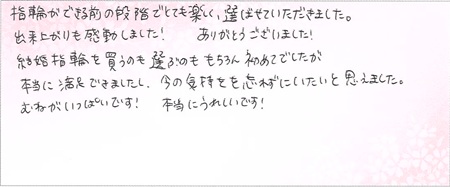 指輪ができる前の段階でとても楽しく、選ばせていただきました。
出来上がりも感動しました！ ありがとうございました！
結婚指輪を買うのも選ぶのももちろん初めてでしたが
本当に満足できましたし、今の気持ちを忘れずにいたいと思えました。
むねがいっぱいです！ 本当にうれしいです！